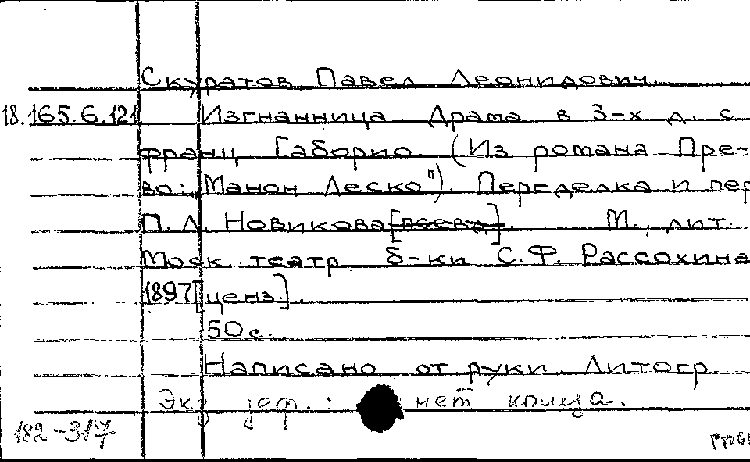 Скуратов Павел Леонидович
18.165.6.121 Изгнанница Драма в 3-х д. с
франц Габорио (Из романа Пре-
во: „Манон Леско"). Переделка и пер
П. Л. Новикова М., лит.
Моск. театр б-ки С.Ф. Рассохина
1897 [ценз.].
50 с.
Написано от руки Литогр.
Экз деф.: нет конца.
182-317